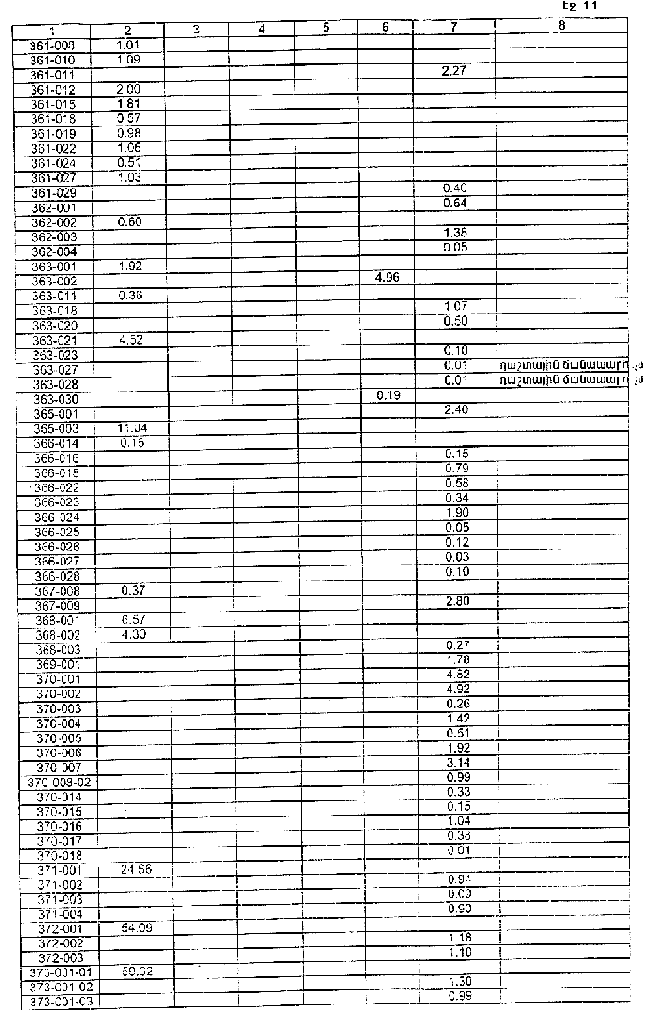 Էջ 11
1 2 3 4 5 6 7 8
361-009 1.01
361-010 1.09
361-011 2.27
361-012 2.00
361-015 1.81
361-018 0.57
361-019 0.98
361-022 1.06
361-024 0.51
361-027 1.03
361-029 0.40
362-001 0.64
362-002 0.60
362-003 1.38
362-004 0.05
363-001 1.92
363-002 4.96
363-011 0.36
363-018 1.07
363-020 0.50
363-021 4.52
363-023 0.10
363-027 0.01 դաշտային ճանապարհ
363-028 0.01 դաշտային ճանապարհ
363-030 0.19
365-001 2.40
365-003 11.04
366-014 0.15
366-016 0.15
366-015 0.79
366-022 0.58
366-023 0.34
366-024 1.90
366-025 0.05
366-026 0.12
366-027 0.03
366-028 0.10
367-008 0.37
367-009 2.80
368-001 6.57
368-002 4.30
368-003 0.27
369-001 1.78
370-001 4.82
370-002 4.92
370-003 0.26
370-004 1.42
370-005 0.51
370-006 1.92
370-007 3.14
370-009-02 0.99
370-014 0.33
370-015 0.15
370-016 1.04
370-017 0.38
370-018 0.01
371-001 24.56
371-002 0.94
371-003
371-004 0.90
372-001 54.09
372-002 1.18
372-003 1.10
373-001-01
373-001-02 1.30
373-001-03 0.99